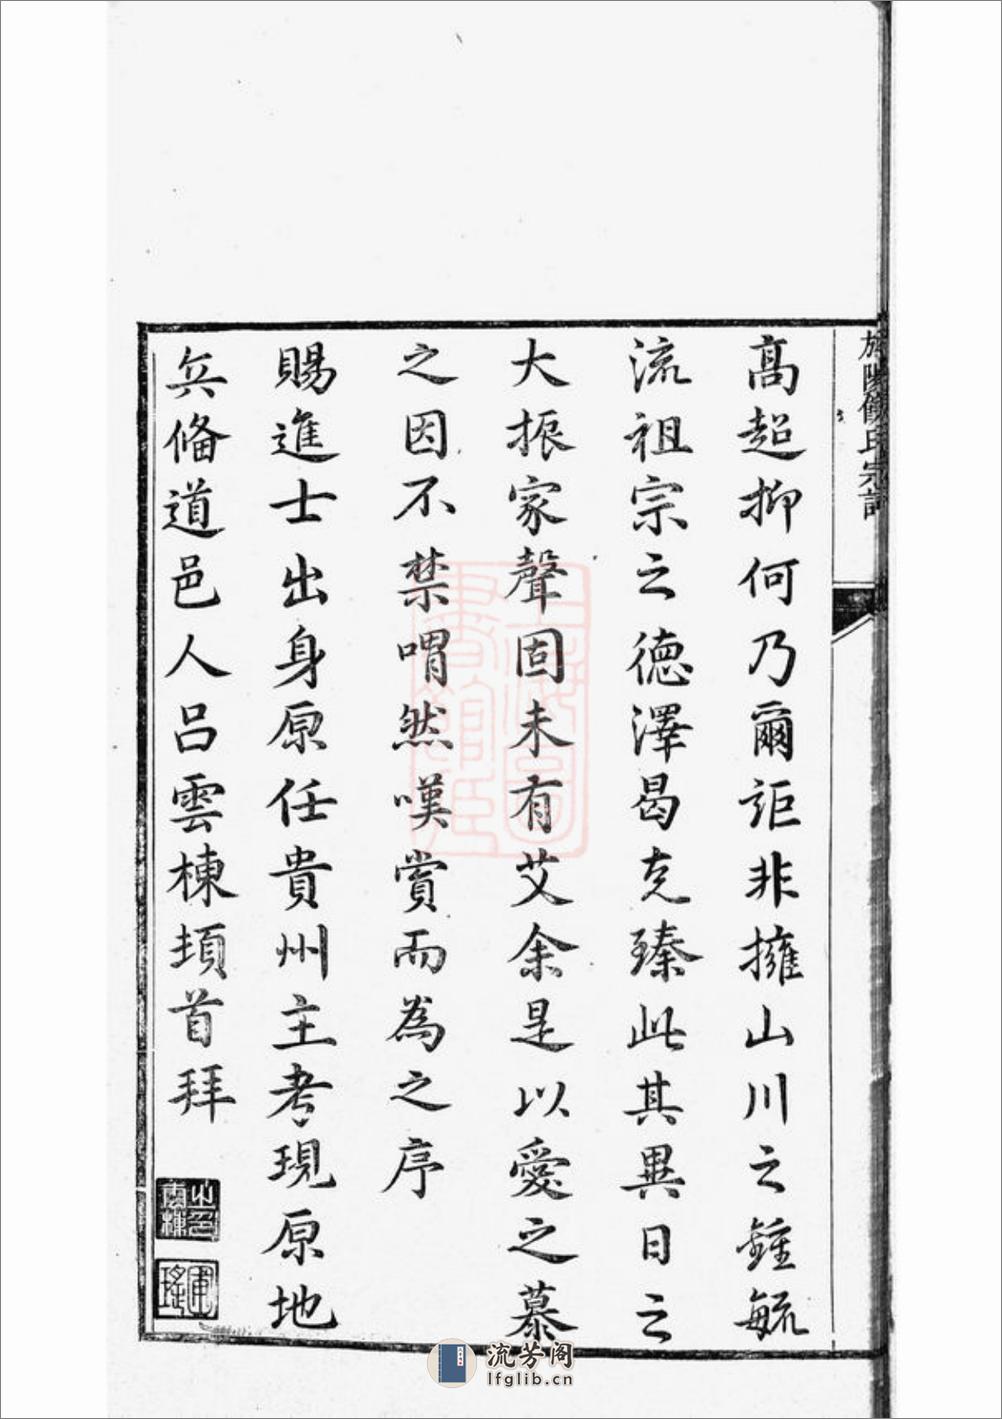 旌陽饒氏宗譜
高超抑何乃爾詎非擁山川之鍾毓
流祖宗之德澤曷克臻此其異日之
大振家聲固未有艾余是以愛之慕
之因不禁喟然嘆賞而為之序
賜進士出身原任貴州主考現原地
兵俻道邑人呂雲棟頓首拜
上海圖
書館藏
流芳阁
lfglib.cn